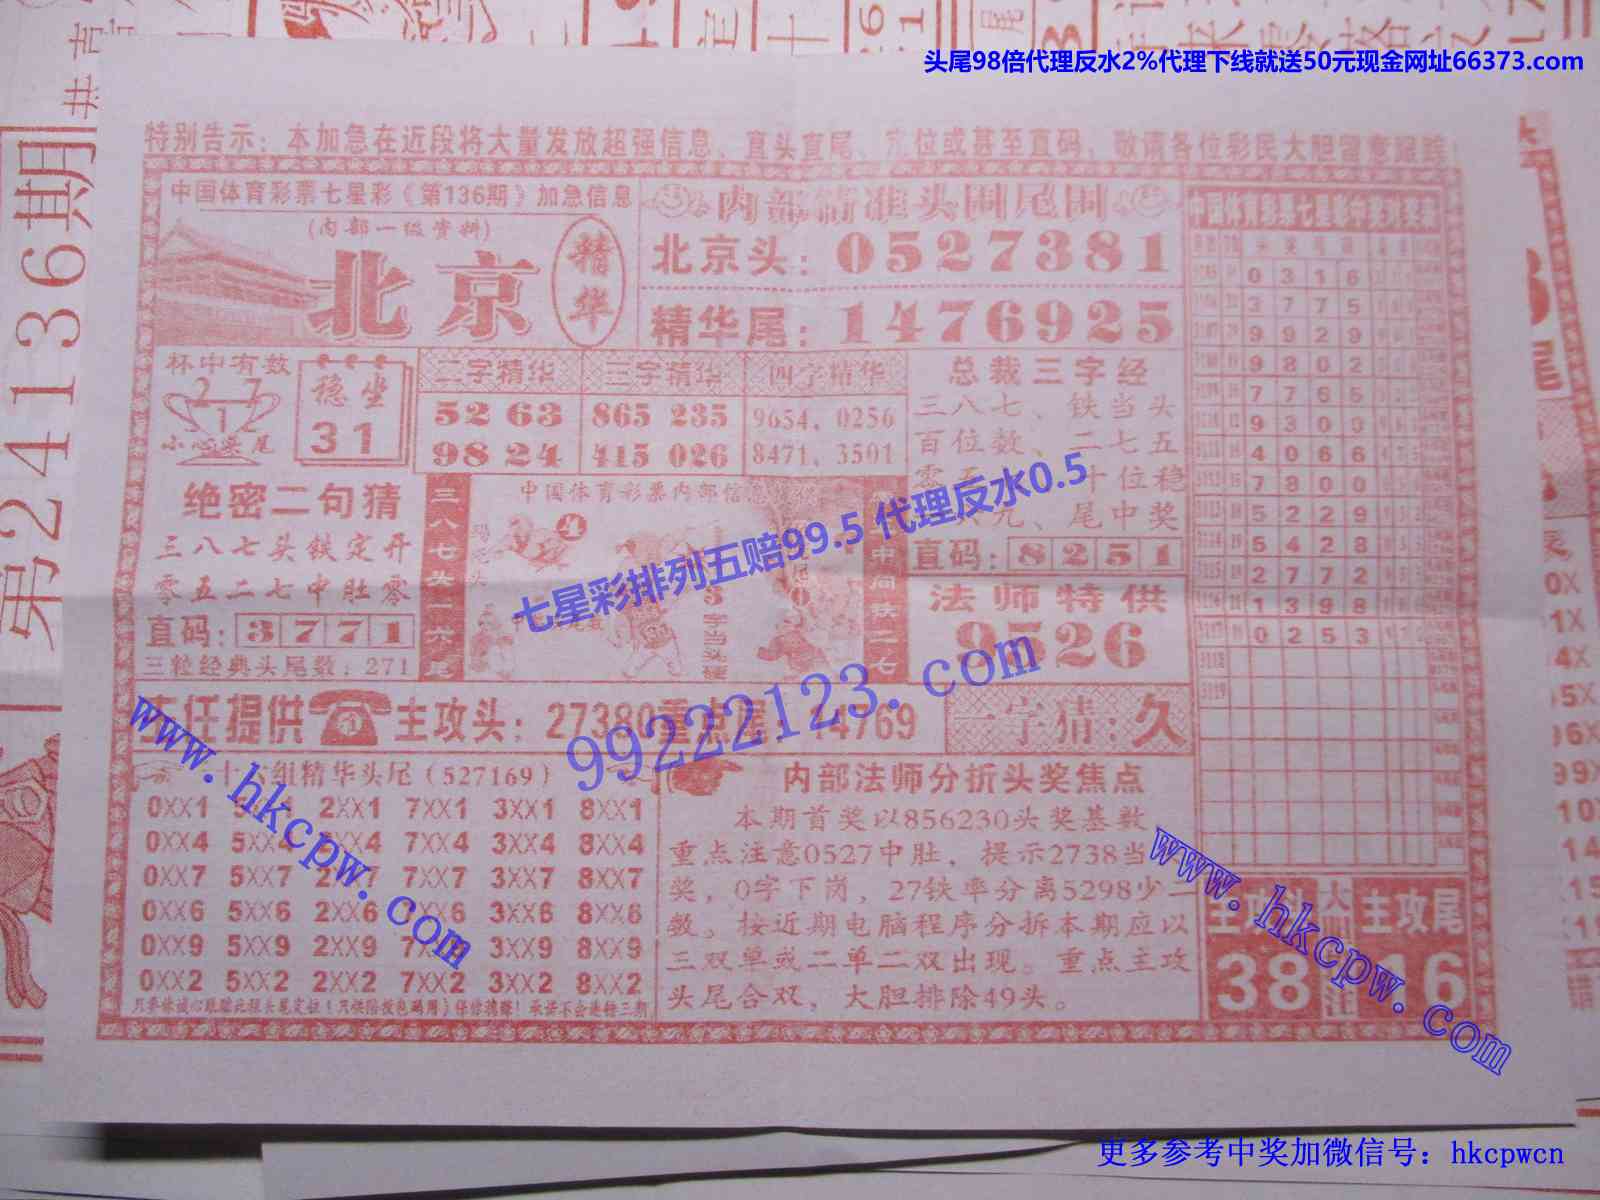 头尾98倍代理反水2%代理下线就送50元现金网址66373.com
第24136期
特别告示：本加急在近段将大量发放超强信息、直头直尾、定位或甚至直码，敬请各位彩民大胆留意跟踪
中国体育彩票七星彩《第136期》加急信息
(内部一级资料)
北京
精华
内部精准头围尾围
北京头：0527381
精华尾：1476925
杯中有数
2 7
1
小心头尾
稳坐
31
二字精华
52 63
98 24
三字精华
865 235
415 026
四字精华
9654，0256
8471，3501
总裁三字经
三八七、铁当头
百位数、二七五
十位稳
元、尾中奖
直码：8251
绝密二句猜
三八七头铁定开
零五二七中肚零
直码：3771
三粒经典头尾数：271
三八七头一六尾
中国体育彩票内部信息
七星彩排列五赔99.5 代理反水0.5
法师特供
9526
99222123.com
主任提供 主攻头：27380重点尾：14769
一字猜：久
www.hkcpw.com
十六组精华头尾（527169）
0XX1 5XX1 2XX1 7XX1 3XX1 8XX1
0XX4 5XX4 2XX4 7XX4 3XX4 8XX4
0XX7 5XX7 2XX7 7XX7 3XX7 8XX7
0XX6 5XX6 2XX6 7XX6 3XX6 8XX6
0XX9 5XX9 2XX9 7XX9 3XX9 8XX9
0XX2 5XX2 2XX2 7XX2 3XX2 8XX2
内部法师分折头奖焦点
本期首奖以856230头奖基数
重点注意0527中肚，提示2738当
奖，0字下岗，27铁率分离5298少二
数。按近期电脑程序分拆本期应以
三双单或二单二双出现。重点主攻
头尾合双，大胆排除49头。
0 3 1 6
3 7 7 5
9 9 2 9
9 8 0 2
7 7 6 5
9 3 0 0
4 0 6 6
7 8 0 0
5 2 2 9
5 4 2 8
2 7 7 2
1 3 9 8
0 2 5 3
主攻头
38
主攻尾
16
www.hkcpw.com
更多参考中奖加微信号：hkcpwcn